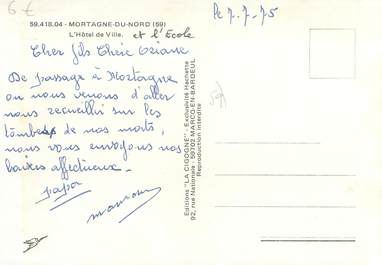 6 €
59.418.04 - MORTAGNE-DU-NORD (59)
L'Hôtel de Ville. et l'Ecole
Cher fils Chère Oriane
De passage à Mortagne
où nous venons d'aller
nous recueillir sur les
tombes de nos morts,
nous vous envoyons nos
baisers affectueux.
papa
maman
Le 7.7.75
Editions "LA CIGOGNE" - Exclusivité Hachette
92, rue Nationale - 59702 MARCQ-EN-BARŒUL
Reproduction interdite